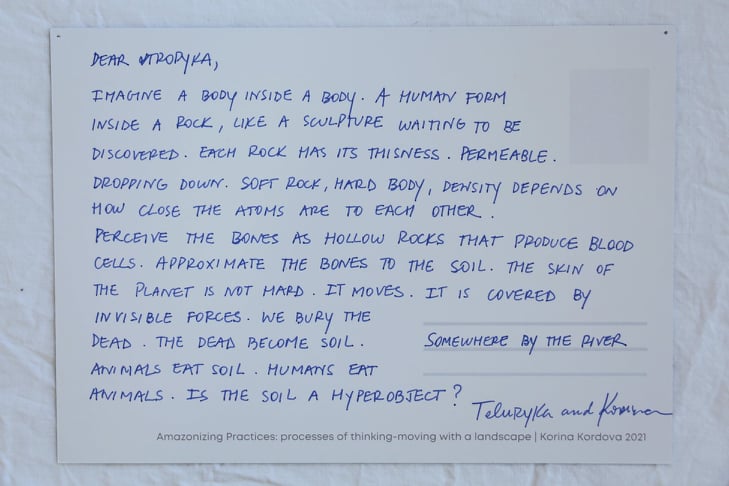 DEAR UTROPYKA,
IMAGINE A BODY INSIDE A BODY. A HUMAN FORM
INSIDE A ROCK, LIKE A SCULPTURE WAITING TO BE
DISCOVERED. EACH ROCK HAS ITS THISNESS. PERMEABLE.
DROPPING DOWN. SOFT ROCK, HARD BODY, DENSITY DEPENDS ON
HOW CLOSE THE ATOMS ARE TO EACH OTHER.
PERCEIVE THE BONES AS HOLLOW ROCKS THAT PRODUCE BLOOD
CELLS. APPROXIMATE THE BONES TO THE SOIL. THE SKIN OF
THE PLANET IS NOT HARD. IT MOVES. IT IS COVERED BY
INVISIBLE FORCES. WE BURY THE
DEAD. THE DEAD BECOME SOIL.
ANIMALS EAT SOIL. HUMANS EAT
ANIMALS. IS THE SOIL A HYPEROBJECT?
SOMEWHERE BY THE RIVER
Teluryka and Korina
Amazonizing Practices: processes of thinking-moving with a landscape | Korina Kordova 2021